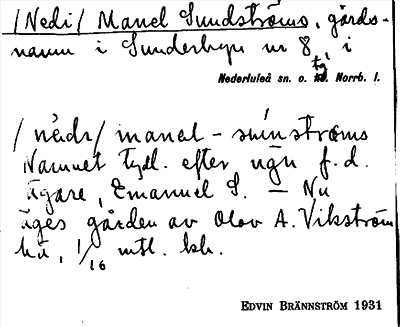 /Nedi/ Manel Sundströms, gårds-
namn i Sunderbyn nr 8, i
Nederluleå sn. o. tg. Norrb. l.
/nèdɩ/ manel-sʉ́nströms
Namnet tydl. efter ngn f.d.
ägare, Emanuel S. — Nu
äges gården av Olov A. Vikström
1/16 mtl. kh.
EDVIN BRÄNNSTRÖM 1931